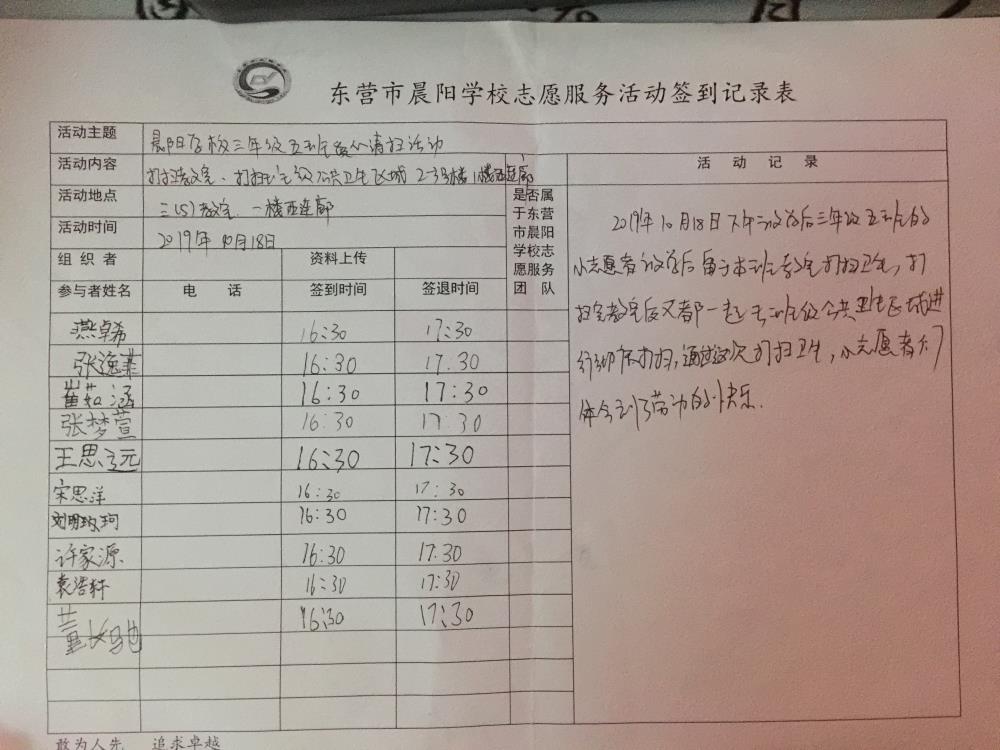 东营市晨阳学校志愿服务活动签到记录表
活动主题 晨阳学校三年级五班爱心清扫活动
活动内容 打扫教室、打扫班级公共卫生区域 2-3号楼1楼西连廊
活动记录
活动地点 三(5)教室、一楼西连廊
活动时间 2019年10月18日
是否属于东营市晨阳学校志愿服务团队
组织者 资料上传
参与者姓名 电话 签到时间 签退时间
燕卓希 16:30 17:30
张逸菲 16:30 17:30
崔茹涵 16:30 17:30
张梦萱 16:30 17:30
王思元 16:30 17:30
宋思洋 16:30 17:30
刘明玫珂 16:30 17:30
许家源 16:30 17:30
袁浩轩 16:30 17:30
董长驰 16:30 17:30
2019年10月18日下午放学后三年级五班的
小志愿者放学后留于本班教室打扫卫生,打
扫完教室后又都一起去班级公共卫生区域进
行打扫,通过这次打扫卫生,小志愿者们
体会到了劳动的快乐.
敢为人先 追求卓越